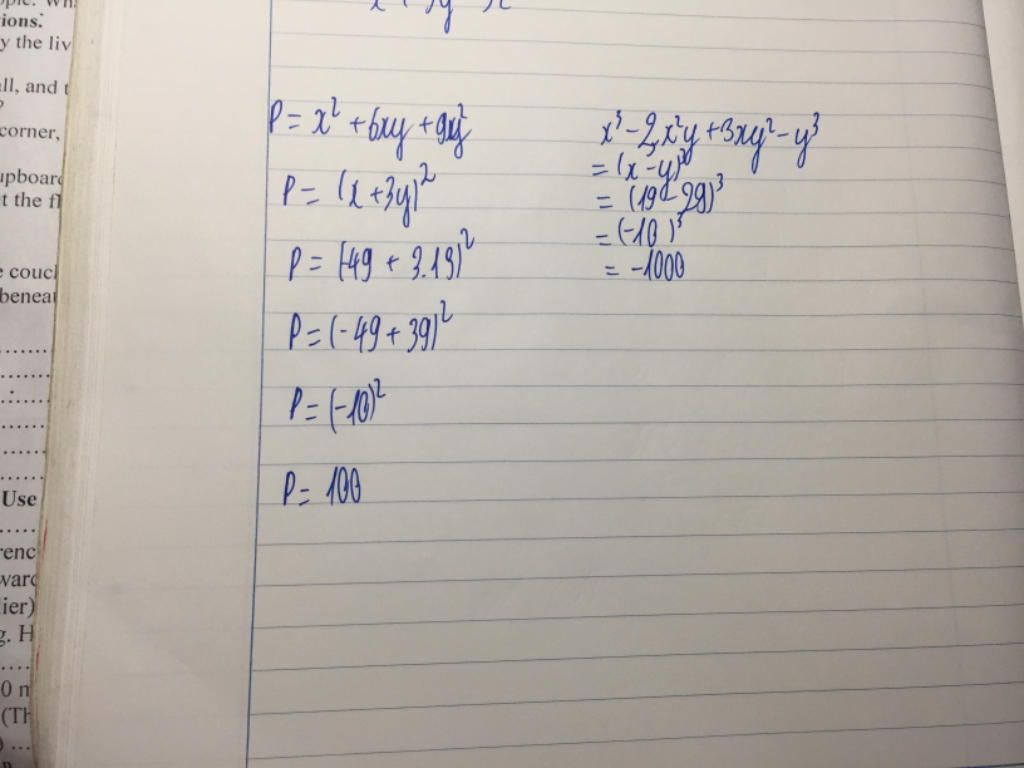 ions:
y the liv
ll, and t
?
corner,
upboard
t the fl
e coucl
beneat
Use
renc
ward
lier)
g. H
0 m
(Th
P = x² + 6xy + 9xy²
P = (x + 3y)²
P = (-49 + 3.13)²
P = (-49 + 39)²
P = (-10)²
P = 100
x³ - 2x²y + 3xy² - y³
= (x - y)³
= (19 - 29)³
= (-10)³
= -1000